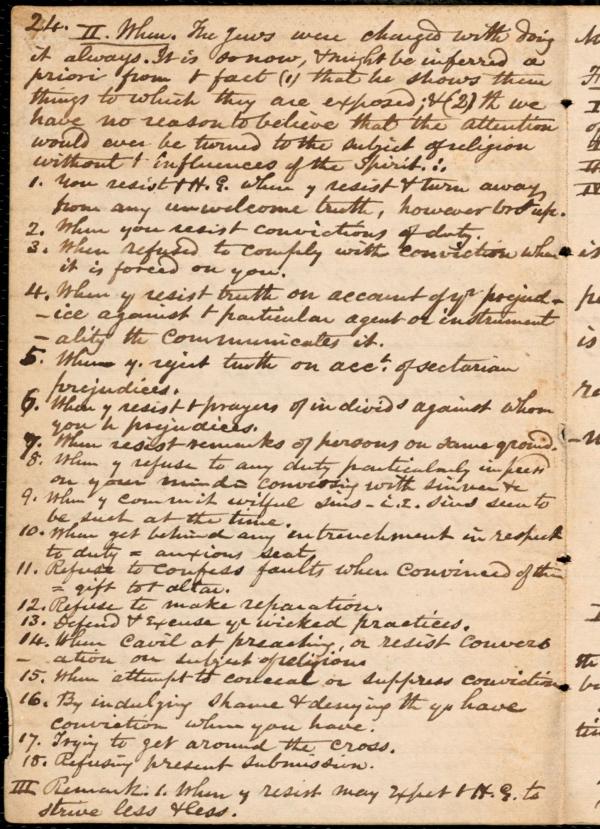 24. II. When. The Jews were charged with doing
it always. It is so now, & might be inferred a
priori from t fact (1) that he shows them
things to which they are exposed; & (2) th we
have no reason to believe that the attention
would ever be turned to the subject of religion
without t influences of the Spirit. ∴
1. You resist t H. G. when y resist & turn away
from any unwelcome truth, however bro't up.
2. When you resist convictions of duty.
3. When refused to comply with conviction when
it is forced on you.
4. When y resist truth on account of yr prejud-
-ice against t particular agent or instrument
-ality th communicates it.
5. When y. reject truth on acct. of sectarian
prejudices.
6. When y resist t prayers of individs against whom
you h prejudices.
7. When resist remarks of persons on same ground.
8. When y refuse to any duty particularly impressd
on your mind = conversing with sinners &c
9. When y commit wilful sins - i.e. sins seen to
be such at the time.
10. When get behind any intrenchment in respect
to duty = anxious seat.
11. Refuse to confess faults when convinced of them
= gift to t altar.
12. Refuse to make reparation.
13. Defend & Excuse yr wicked practices.
14. When cavil at preaching, or resist convers
-ation on subject of religion
15. When attempt to conceal or suppress conviction
16. By indulging shame & denying th yu have
conviction when you have.
17. Trying to get around the cross.
18. Refusing present submission.
III Remark. 1. When y resist may expect t H. G. to
strive less & less.